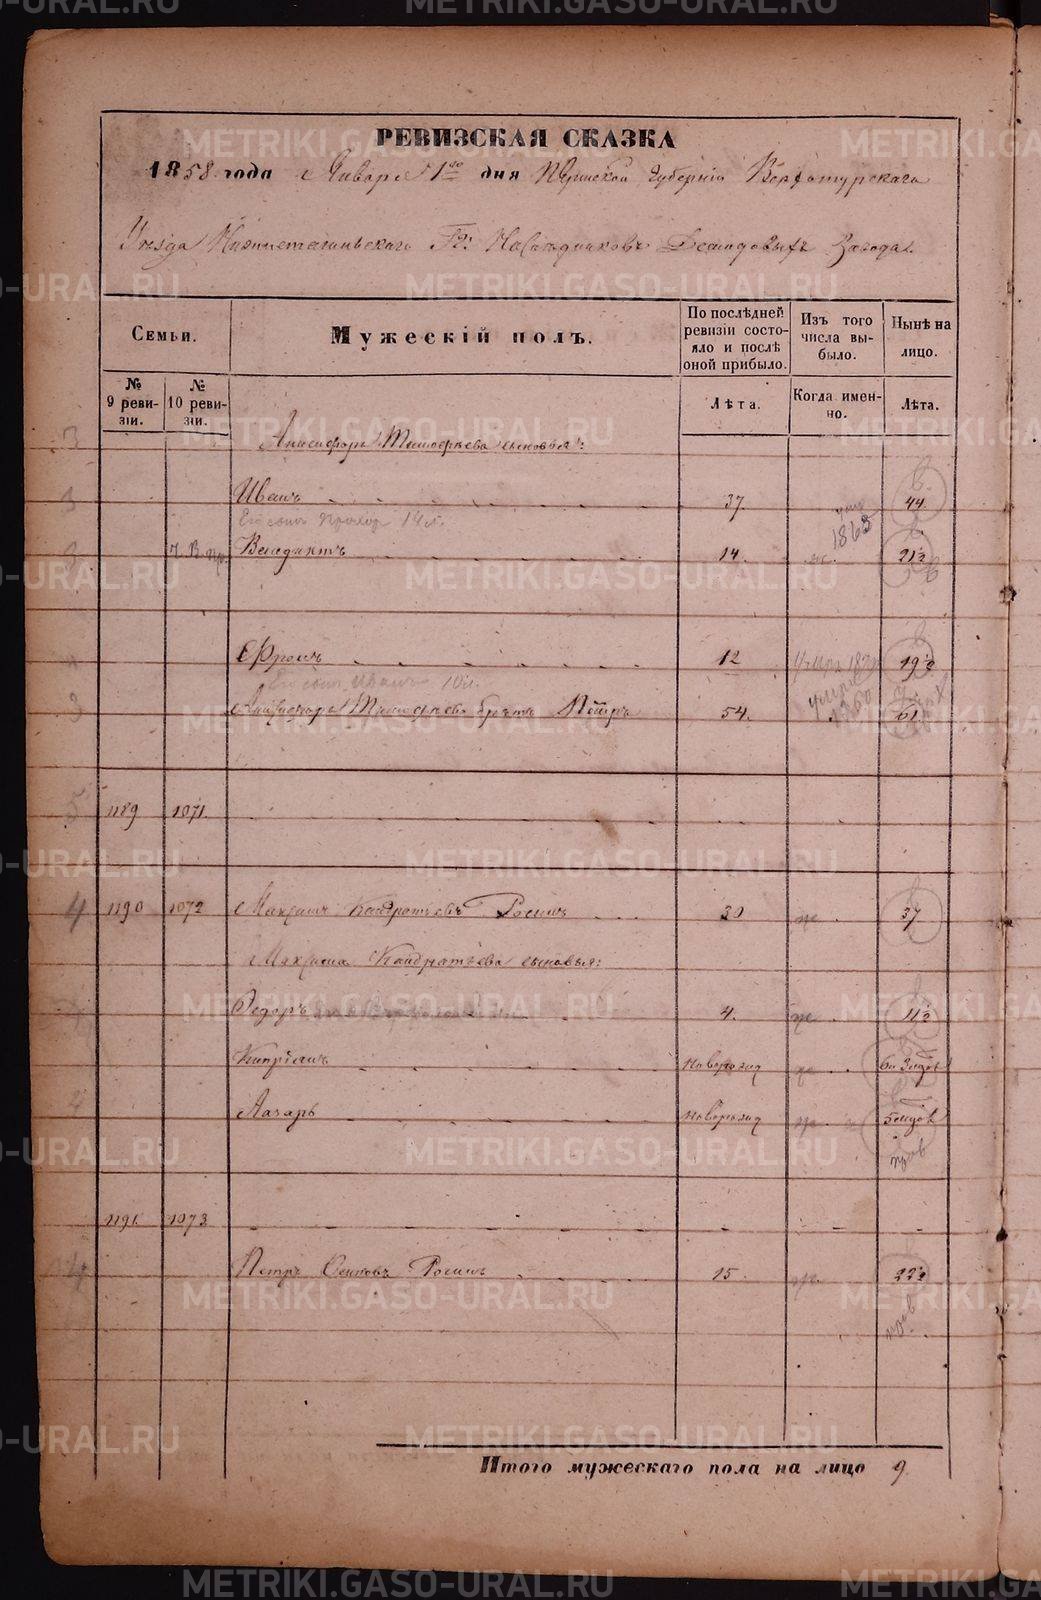 РЕВИЗСКАЯ СКАЗКА
1858 года Января 1го дня Пермской Губернiи Верхотурскаго
Уезда Нижнетагильскаго Гг: Наследниковъ Демидовыхъ Завода.
Семьи.
Мужескiй полъ.
По послѣдней ревизiи состояло и послѣ оной прибыло.
Изъ того числа выбыло.
Нынѣ на лицо.
№ 9 ревизiи.
№ 10 ревизiи.
Лѣта.
Когда именно.
Лѣта.
3 Анисифора Тимофеева сыновья:
3 Иванъ 37. 44.
Его сынъ Прохор 14 л. 1863
3 Венедиктъ 14. 21½
Ефремъ 12 19½
Его сынъ Иванъ 10 л. умер 1860
3 Анисифора Тимофеева братъ Петръ 54. 61
5 1189 1071.
4 1190 1072 Максимъ Кондратьевъ Росинъ 30 37
Максима Кондратьева сыновья:
Федоръ 4. 11½
Кипрiянъ новорожд
Лазарь новорожд 5 мцов
1191. 1073
4 Петръ Осиповъ Росинъ 15 22½
Итого мужескаго пола на лицо 9.
METRIKI.GASO-URAL.RU